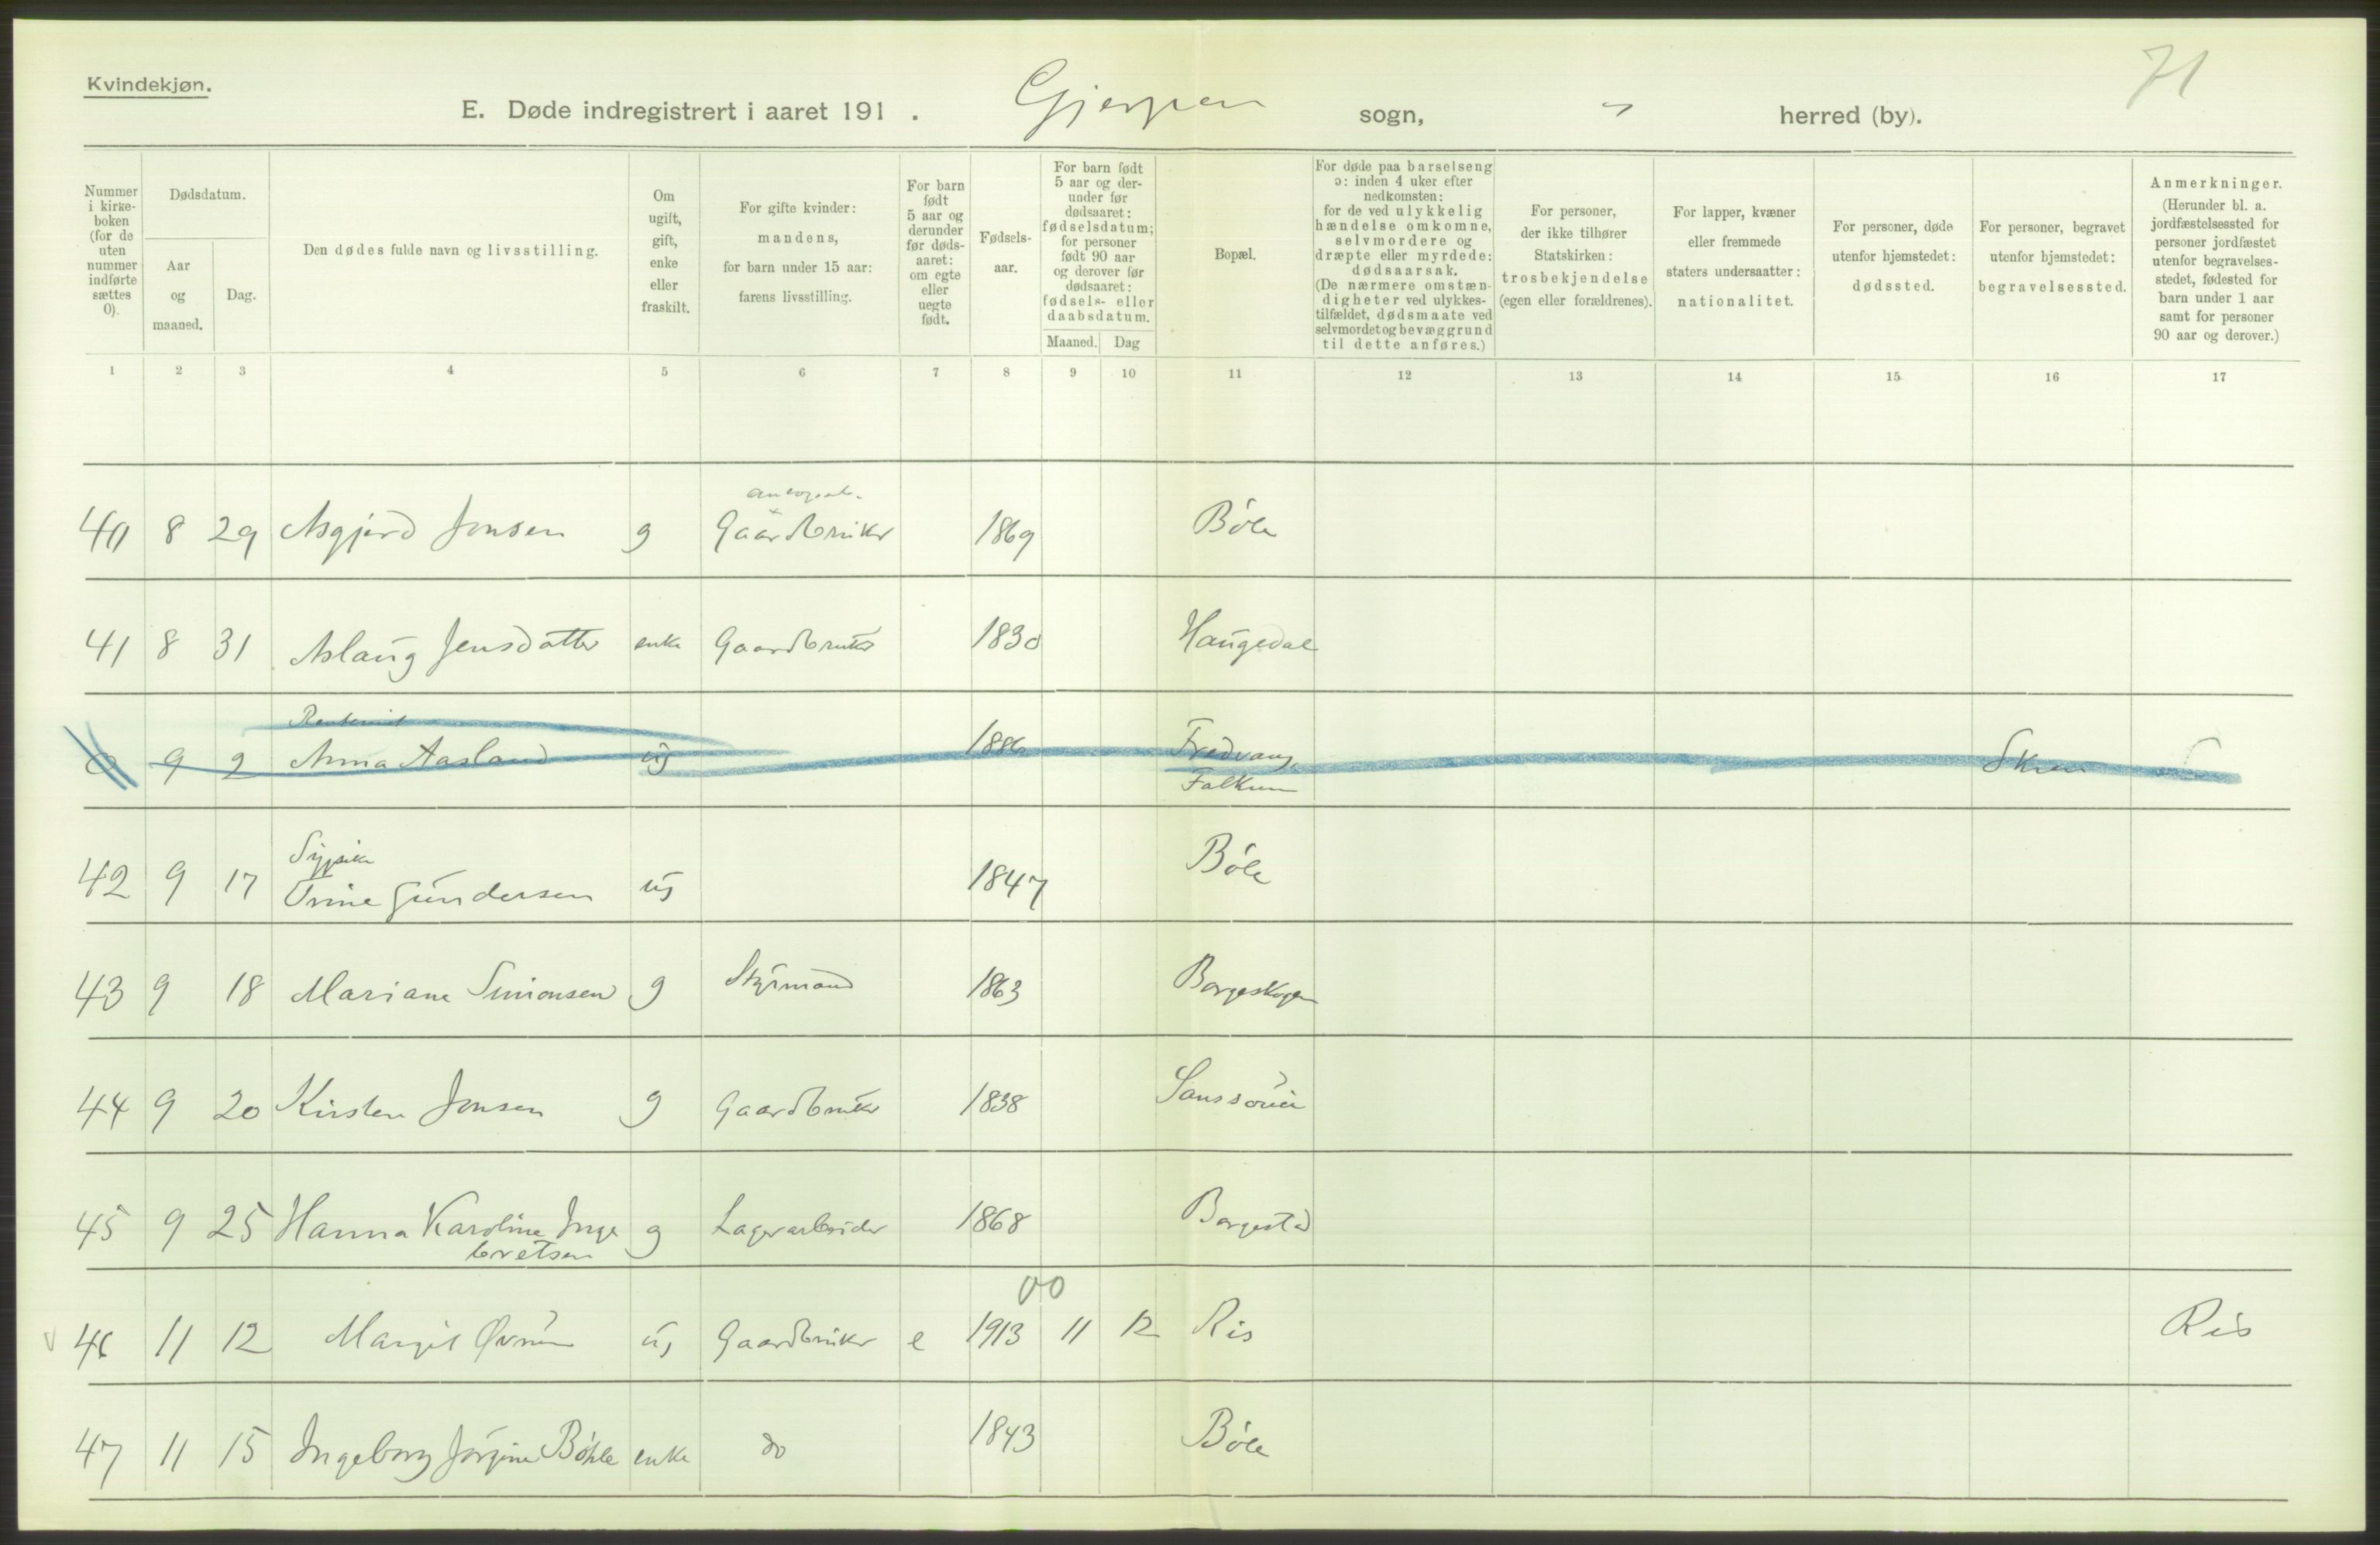 Kvindekjøn.
71
E. Døde indregistrert i aaret 191 . Gjerpen sogn, " herred (by).
Nummer i kirke-boken (for de uten nummer indførte sættes 0).
Dødsdatum.
Aar og maaned.
Dag.
Den dødes fulde navn og livsstilling.
Om ugift, gift, enke eller fraskilt.
For gifte kvinder: mandens, for barn under 15 aar: farens livsstilling.
For barn født 5 aar og derunder før døds-aaret: om egte eller uegte født.
Fødsels-aar.
For barn født 5 aar og der-under før dødsaaret: fødselsdatum; for personer født 90 aar og derover før dødsaaret: fødsels- eller daabsdatum.
Maaned. Dag
Bopæl.
For døde paa barselseng ɔ: inden 4 uker efter nedkomsten: for de ved ulykkelig hændelse omkomne, selvmordere og dræpte eller myrdede: dødsaarsak. (De nærmere omstæn-digheter ved ulykkes-tilfældet, dødsmaate ved selvmordet og bevæggrund til dette anføres.)
For personer, der ikke tilhører Statskirken: trosbekjendelse (egen eller forældrenes).
For lapper, kvæner eller fremmede staters undersaatter: nationalitet.
For personer, døde utenfor hjemstedet: dødssted.
For personer, begravet utenfor hjemstedet: begravelsessted.
Anmerkninger. (Herunder bl. a. jordfæstelsessted for personer jordfæstet utenfor begravelses-stedet, fødested for barn under 1 aar samt for personer 90 aar og derover.)
1 2 3 4 5 6 7 8 9 10 11 12 13 14 15 16 17
40 8 29 Asgjerd Jonsen g Gaardbruker 1869 Böle
41 8 31 Aslaug Jensdatter enke Gaardbruker 1830 Haugedal
0 9 2 Anna Aasland ug 1886 Fredvang, Skien
Falkum
42 9 17 Sypike
Trine Gundersen ug 1847 Böle
43 9 18 Mariane Simonsen g Styrmand 1863 Borgeskogen
44 9 20 Kirsten Jonsen g Gaardbruker 1838 Sanssouci
45 9 25 Hanna Karoline Inge g Lagerarbeider 1868 Borgestad
bretsen
00
46 11 12 Margit ug Gaardbruker e 1913 11 12 Ris Ris
47 11 15 Ingeborg Jørgine Bøhle enke do 1843 Böle